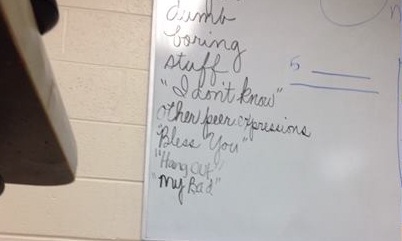 dumb
boring
stuff
"I don't know"
other peer expressions
"Bless You"
"Hang Out"
"My Bad"
5